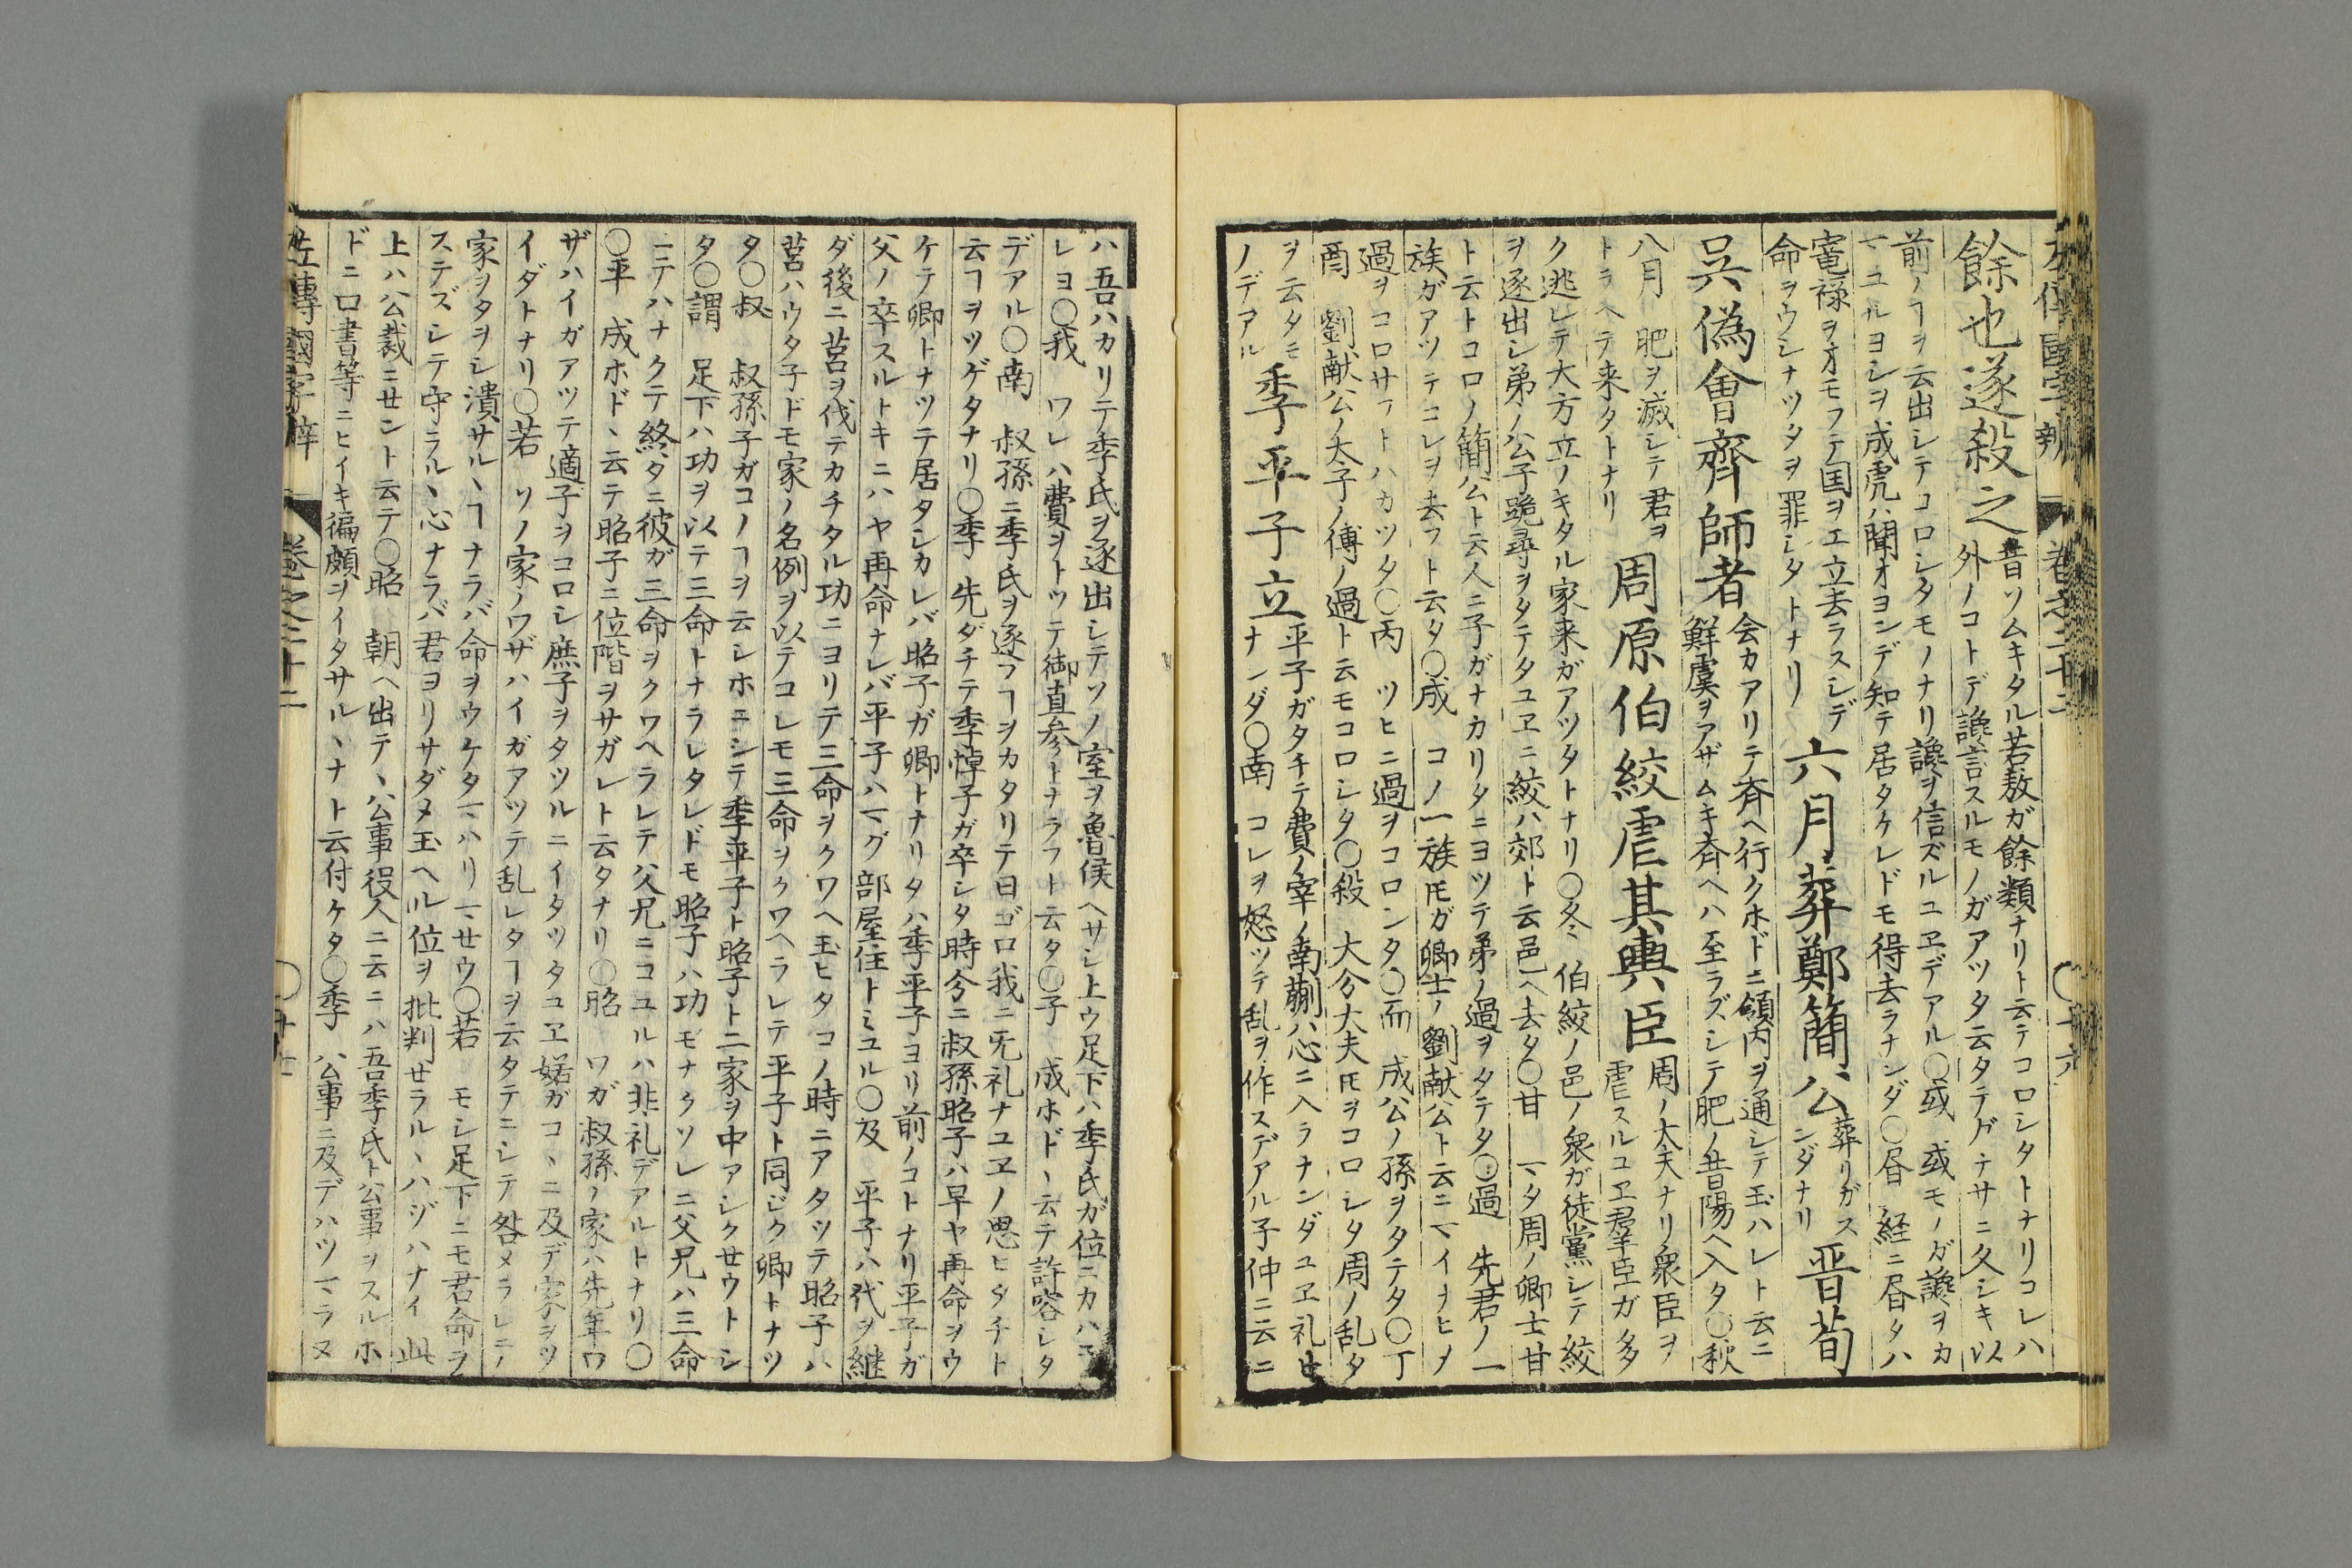 左傳國字辯 巻之二十二 〇十六
餘也遂殺之
昔ソムキタル若敖ガ餘類ナリト云テコロシタトナリコレハ
外ノコトデ讒言スルモノガアツタ云タテグナサニ久シキ以
前ノヿヲ云出シテコロシタモノナリ讒ヲ信ズルユヱデアル〇或 或モノガ讒ヲカ
マユルヨシヲ成虎ハ聞オヨンデ知テ居タケレドモ得去ラナンダ〇昏 経ニ昏タハ
寵禄ヲオモフテ国ヲエ立去ラスシデ
命ヲウシナツタヲ罪シタトナリ
六月葬鄭簡公
葬リガス
ンダナリ
晋荀
呉偽會齊師者
会カアリテ斉ヘ行クホドニ領内ヲ通シテ玉ハレト云ニ
鮮虞ヲアザムキ斉ヘハ至ラズシテ肥ノ昔陽ヘ入タ〇秋
八月 肥ヲ滅シテ君ヲ
トラヘテ来タトナリ
周原伯絞虐其輿臣
周ノ大夫ナリ衆臣ヲ
虐スルユヱ群臣ガ多
ク逃レテ大方立ノキタル家来ガアツタトナリ〇冬 伯絞ノ邑ノ衆ガ徒黨シテ絞
ヲ逐出シ弟ノ公子跪尋ヲタテタユヱニ絞ハ郊ト云邑ヘ去タ〇甘 マタ周ノ卿士甘
ト云トコロノ簡公ト云人ニ子ガナカリタニヨツテ弟ノ過ヲタテタ〇過 先君ノ一
族ガアツテコレヲ去フト云タ〇成 コノ一族𪜈ガ卿士ノ劉献公ト云ニマイナヒノ
過ヲコロサフトハカツタ〇丙 ツヒニ過ヲコロンタ〇而 成公ノ孫ヲタテタ〇丁
酉 劉献公ノ太子ノ傅ノ過ト云モコロシタ〇殺 大分大夫𪜈ヲコロシタ周ノ乱タ
ヲ云タモ
ノデアル
季平子立
平子ガタチテ費ノ宰ノ南蒯ハ心ニ入ラナンダユヱ礼セ
ナンダ〇南 コレヲ怒ツテ乱ヲ作スデアル子仲ニ云ニ
ハ吾ハカリテ季氏ヲ逐出シテソノ室ヲ魯侯ヘサシ上ウ足下ハ季氏ガ位ニカハ
レヨ〇我 ワレハ費ヲトツテ御直参トナラフト云タ〇子 成ホド丶云テ許容シタ
デアル〇南 叔孫ニ季氏ヲ逐フヿヲカタリテ日ゴロ我ニ无礼ナユヱノ思ヒタチト
云ヿヲツゲタナリ〇季 先ダチテ季悼子ガ卒シタ時分ニ叔孫昭子ハ早ヤ再命ヲウ
ケテ卿トナツテ居タシカレバ昭子ガ卿トナリタハ季平子ヨリ前ノコトナリ平子ガ
父ノ卒スルトキニハヤ再命ナレバ平子ハマグ部屋住トミユル〇及 平子ハ代ヲ継
ダ後ニ莒ヲ伐テカチタル功ニヨリテ三命ヲクワヘ玉ヒタコノ時ニアタツテ昭子ハ
莒ハウタ子ドモ家ノ名例ヲ以テコレモ三命ヲクワヘラレテ平子ト同ジク卿トナツ
タ〇叔 叔孫子ガコノヿヲ云シホニシテ季平子ト昭子ト二家ヲ中アシクせウトシ
タ〇謂 足下ハ功ヲ以テ三命トナラレタレドモ昭子ハ功モナクソレニ父兄ハ三命
ニテハナクテ終タニ彼ガ三命ヲクワヘラレテ父兄ニコユルハ非礼デアルトナリ〇
〇平 成ホド丶云テ昭子ニ位階ヲサガレト云タナリ〇昭 ワガ叔孫ノ家ハ先年ワ
ザハイガアツテ適子ヲコロシ庶子ヲタツルニイタツタユヱ婼ガコヽニ及デ家ヲツ
イダトナリ〇若 ソノ家ノワザハイガアツテ乱レタヿヲ云タテニシテ咎メラレテノ
家ヲタヲシ潰サルヽヿナラバ命ヲウケタマハリマせウ〇若 モシ足下ニモ君命ヲ
ステズシテ守ニラルヽ心ナラバ君ヨリサダメ玉ヘル位ヲ批判せラルヽハヅハナイ此
上ハ公裁ニせント云テ〇昭 朝ヘ出テヽ公事役人ニ云ニハ吾季氏ト公事ヲスルホ
ドニ口書等ニヒイキ徧頗ヲイタサルヽナト云付ケタ〇季 公事ニ及デハツマラヌ
左傳國字辯 巻之二十二